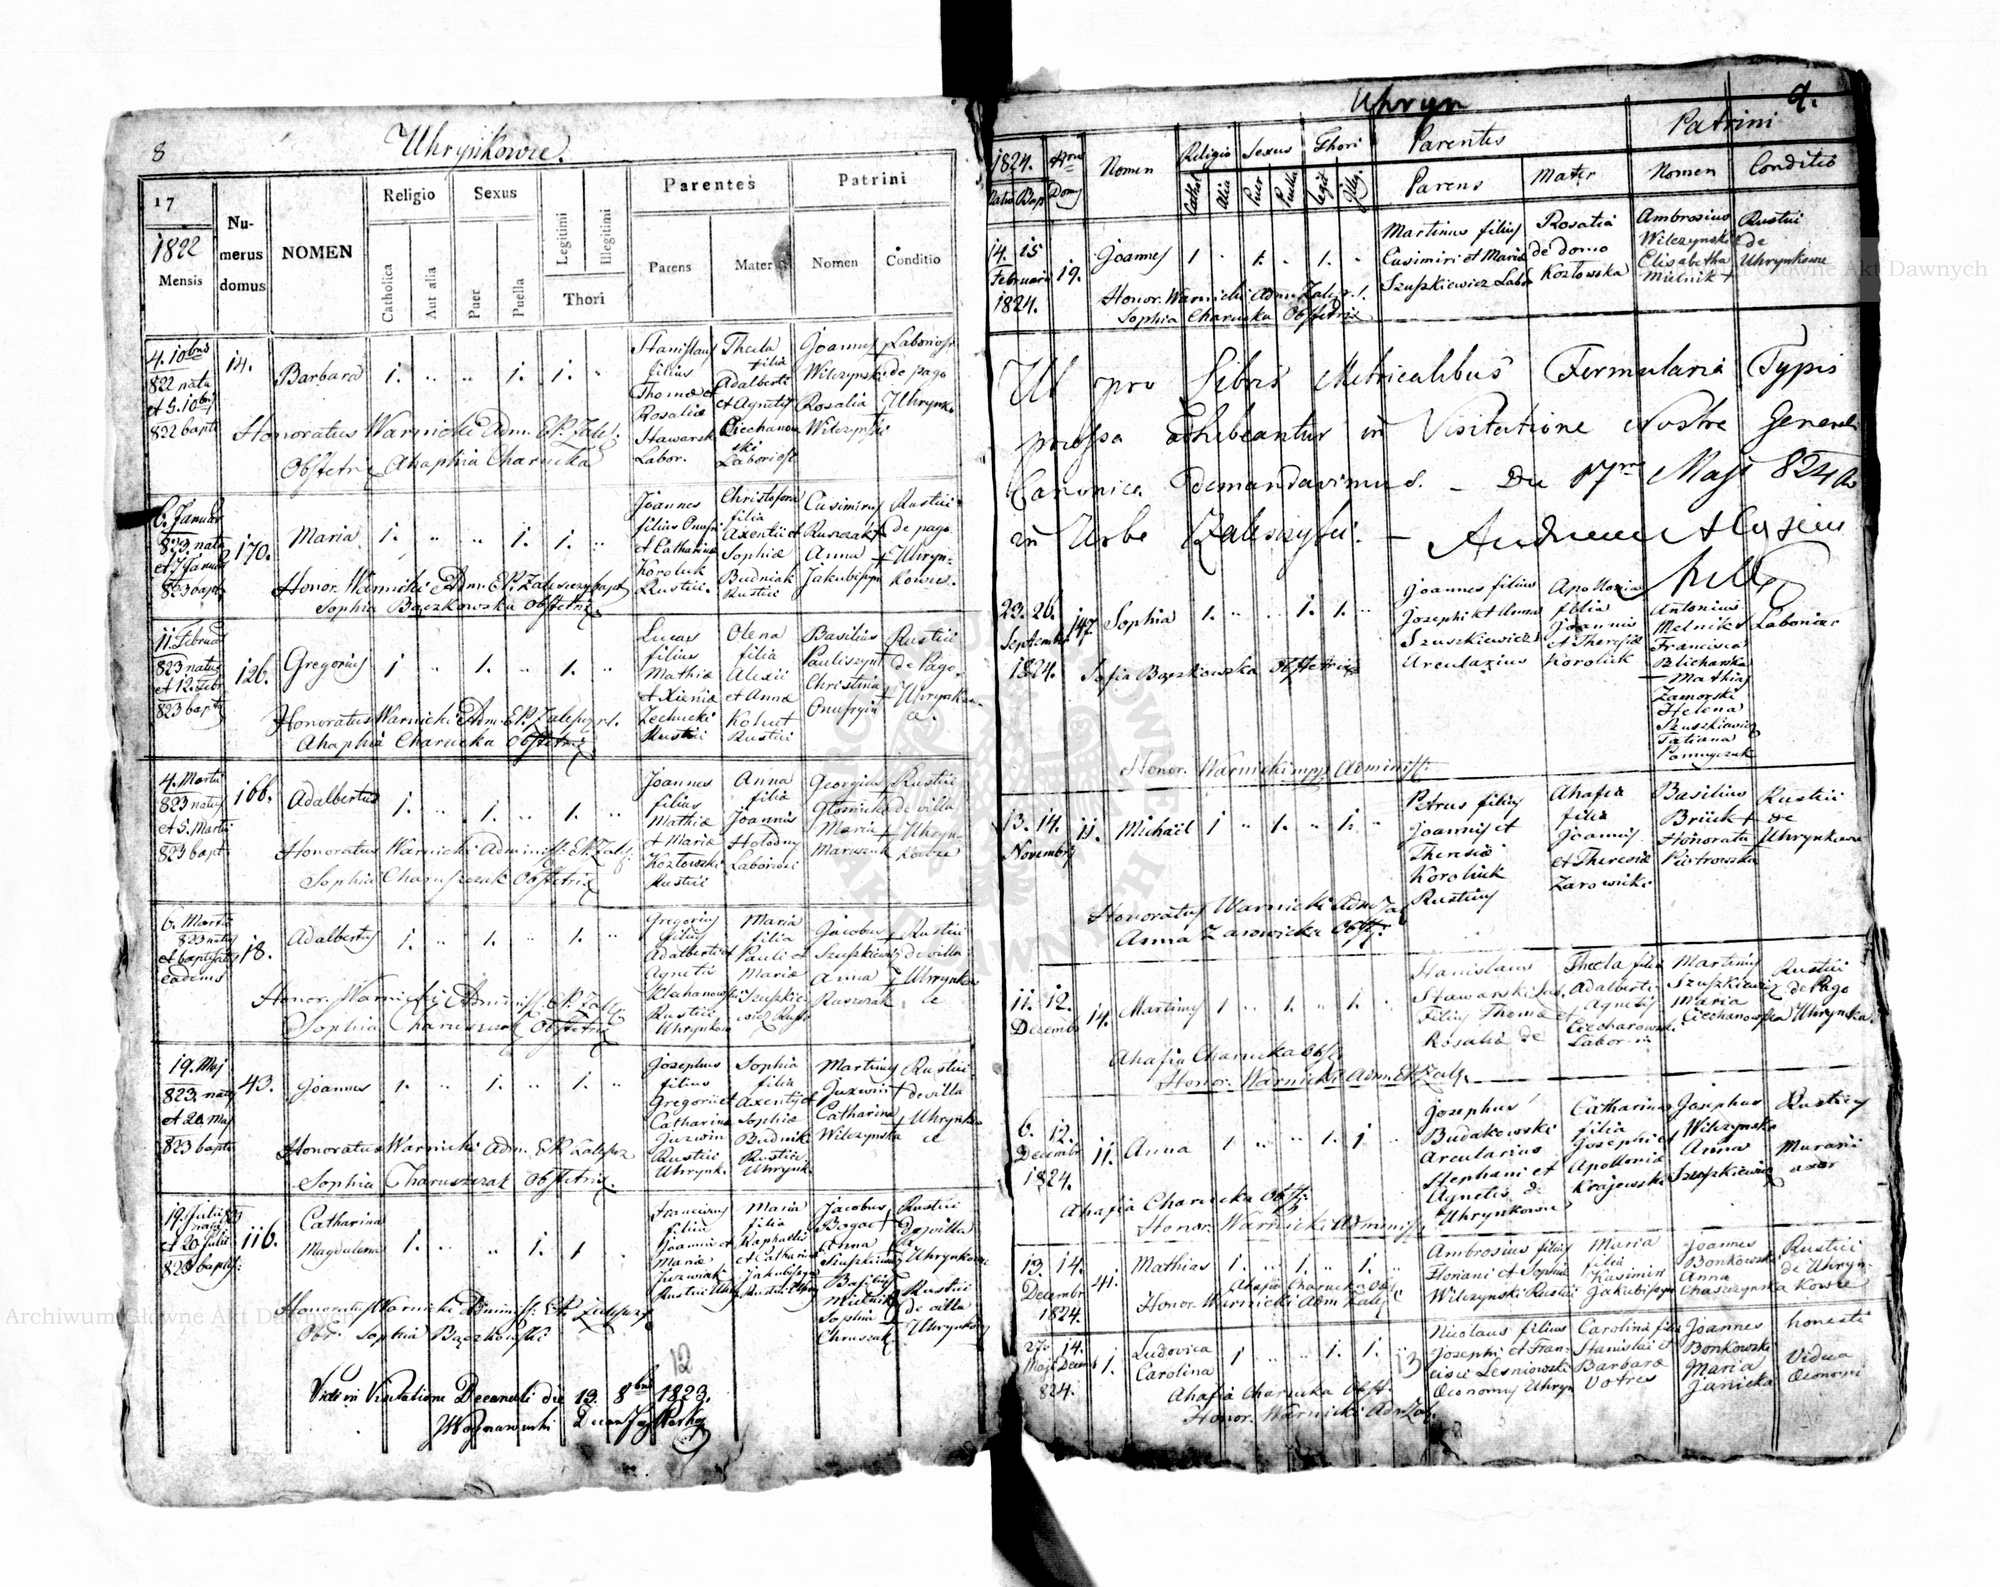 8
Uhrynkowce.
17
1822
Mensis
Numerus domus
NOMEN
Religio
Catholica
Aut alia
Sexus
Puer
Puella
Legitimi
Illegitimi
Thori
Parentes
Parens
Mater
Patrini
Nomen
Conditio
4. 10bris
822 nata
et 5. 10bris
822 bapt
14.
Barbara
1.
1.
1.
Stanislaus
filius
Thomæ et
Rosaliæ
Stawarsk
Labor.
Thecla
filia
Adalberti
et Agnetis
Ciechanow
ski
Laboriosi
Joannes +
Wilczynski
Rosalia
Wilczynski
Laboriosi
de pago
Uhrynko
Honoratus Warnicki Adm. E.R. Zalesz.
Obstetrix Ahaphia Charucka
6. Januar
823. nata
et 7 Januar
823 bapt
170.
Maria
1.
1.
1.
Joannes
filius Onufri
et Catharinæ
Koroluk
Rustici.
Christofora
filia
Axentii et
Sophiæ
Budniak
Rustici
Casimirus
Ruszczak +
Anna +
Jakubiszyn
Rustici
de pago
Uhryn-
kowce.
Honor. Warnicki Adm. E.R. Zaleszczy bapt
Sophia Bączkowska Obstetrix
11. Februar
823 natus
et 12. Febr
823 bapt
126.
Gregorius
1
1.
1.
Lucas
filius
Mathiæ
et Xieniæ
Zechucki
Rustici
Olena
filia
Alexii
et Annæ
Kohut
Rustici
Basilius
Pauliszyn +
Christina
Onufryin +
Rustici
de Pago
Uhrynkow
ce.
Honoratus Warnicki Adm. E.R. Zaleszcz.
Ahaphia Charucka Obstetrix
4. Martii
823 natus
et 5. Martii
823 bapt
166.
Adalbertus
1.
1.
1.
Joannes
filius
Mathiæ
et Mariæ
Kozlowski
Rustici
Anna
filia
Joannis
Holodny
Laboriosi
Georgius
Glomicka
Maria +
Marszuk
Rustici
de villa
Uhryn-
kowce
Honoratus Warnicki Administ. E.R. Zalesz.
Sophia Charuszczak Obstetrix
6. Martii
823 natus
et baptisatus
eadem
18.
Adalbertus
1.
1.
1.
Gregorius
filius
Adalberti et
Agnetis
Klechanowski
Rustici
Uhrynkow
Maria
filia
Pauli et
Mariæ
Szuszkie
wicz Rust
Jacobus +
Szuszkiewicz
Anna +
Ruszczak
Rustici
de villa
Uhrynkow
ce
Honor. Warnicki Administ. E.R. Zalesz.
Sophia Charuszczak Obstetrix
19. Maj
823. natus
et 20. Maj
823 bapt
43.
Joannes
1.
1.
1.
Josephus
filius
Gregorii et
Catharinæ
Juzwin
Rustici
Uhrynk.
Sophia
filia
Axentii et
Sophiæ
Budnik
Rustici
Uhrynk
Martinus
Juzwin +
Catharina +
Wilczynska
Rustici
de villa
Uhrynkow
ce
Honoratus Warnicki Adm. E.R. Zaleszcz
Sophia Charuszczak Obstetrix.
19. Julii
nata
et 20 Julii
823 baptis.
116.
Catharina
Magdalena
1.
1.
1
Franciscus
filius
Joannis et
Mariæ
Juzwiak
Rustici Uhry
Maria
filia
Raphaelis
et Catharinæ
Jakubiszyn
Rustici Uhryn
Jacobus
Bogac +
Anna
Szuszkiewicz
Basilius
Mielnik +
Sophia +
Chruszak
Rustici
de villa
Uhrynkowce
Rustici
de villa
Uhrynkow
Honoratus Warnicki Administ. E.R. Zaleszcz
Obs. Sophia Bączkowski
12
Vidi in Visitatione Decanali die 13. 8bris 1823.
Uhryn
9.
1824.
Nrus
Domus
Nomen
Religio
Cathol
Alia
Sexus
Puer
Puella
Thori
Legit
Illeg.
Parentes
Parens
Mater
Patrini
Nomen
Conditio
14. 15
Februarii
1824.
19.
Joannes
1
1.
1.
Martinus filius
Casimiri et Mariæ
Szuszkiewicz Labor
Rosalia
de domo
Kozlowska
Ambrosius
Wilczynski
Elisabetha
Mielnik +
Rustici
de
Uhrynkowce
Honor. Warnicki Adm. Zalesz.
Sophia Charucka Obstetrix
Ut pro Libris Metricalibus Formularia Typis
pressa adhibeantur in Visitatione Nostra Generali
Canonica demandavimus. – Die 17ma Maji 824 Ao
in Urbe Zaleszczyki. – Andreas Aloysius
23. 26.
Septembr
1824.
147.
Sophia
1.
1.
1.
Joannes filius
Josephi et Annæ
Szuszkiewicz
Arcularius
Apollonia
filia
Joannis
et Theresiæ
Koroluk
Antonius
Melnik
Francisca
Pelicharska
– Mathias
Zamorski
Helena
Szuszkiewicz
Tatiana
Laborios
Sofia Bączkowska Obstetrix
Honor. Warnicki mpp Administ.
13. 14.
Novembris
11.
Michael
1
1.
1.
Petrus filius
Joannis et
Theresiæ
Koroluk
Rusticus
Ahafia
filia
Joannis
et Theresiæ
Zarowicki
Basilius
Bruck +
Honorata
Piotrowska
Rustici
de
Uhrynkowce
Honoratus Warnicki Adm. Zal
Anna Zarowicka Obst.
11. 12.
Decembr
14.
Martinus
1
1.
1.
Stanislaus
Stawarski Lab.
filius Thomæ et
Rosaliæ de
Thecla filia
Adalberti
Agnetis
Ciechanowski
Labor
Martinus
Szuszkiewicz
Maria
Ciechanowska
Rustici
de Pago
Uhrynkow.
Ahafia Charucka Obst.
Honor. Warnicki Adm. E.R. Zalesz.
6. 12.
Decembr
1824.
11.
Anna
1
1.
1.
Josephus
Budakowski
Arcularius
Stephani et
Agnetis de
Uhrynkowce
Catharina
filia
Josephi et
Apolloniæ
Krajewski
Josephus
Wilczynski
Anna
Szuszkiewicz
Rustici
Murarii
uxor
Ahafia Charucka Obst.
Honor. Warnicki Administ.
13. 14.
Decembr
1824.
41.
Mathias
1.
1.
1.
Ambrosius filius
Floriani et Sophiæ
Wilczynski Rustici
Maria
filia
Kasimiri
Jakubiszyn
Joannes
Bonkowski
Anna
Chaszczynska
Rustici
de Uhryn-
kowce
Ahafia Charucka Obst.
Honor. Warnicki Adm Zalesz
27. 14.
Maji Decemb
824.
1.
Ludovica
Carolina
1
1.
1.
13
Nicolaus filius
Josephi et Fran-
ciscæ Lesniowski
Oeconomus Uhryn
Carolina filia
Stanislai et
Barbaræ
Votres
Joannes
Bonkowski
Maria
Janicka
honesti
Vidua
Oeconomi
Ahafia Charucka Obst.
Honor. Warnicki Adm Zal.
Archiwum Główne Akt Dawnych
Archiwum Główne Akt Dawnych